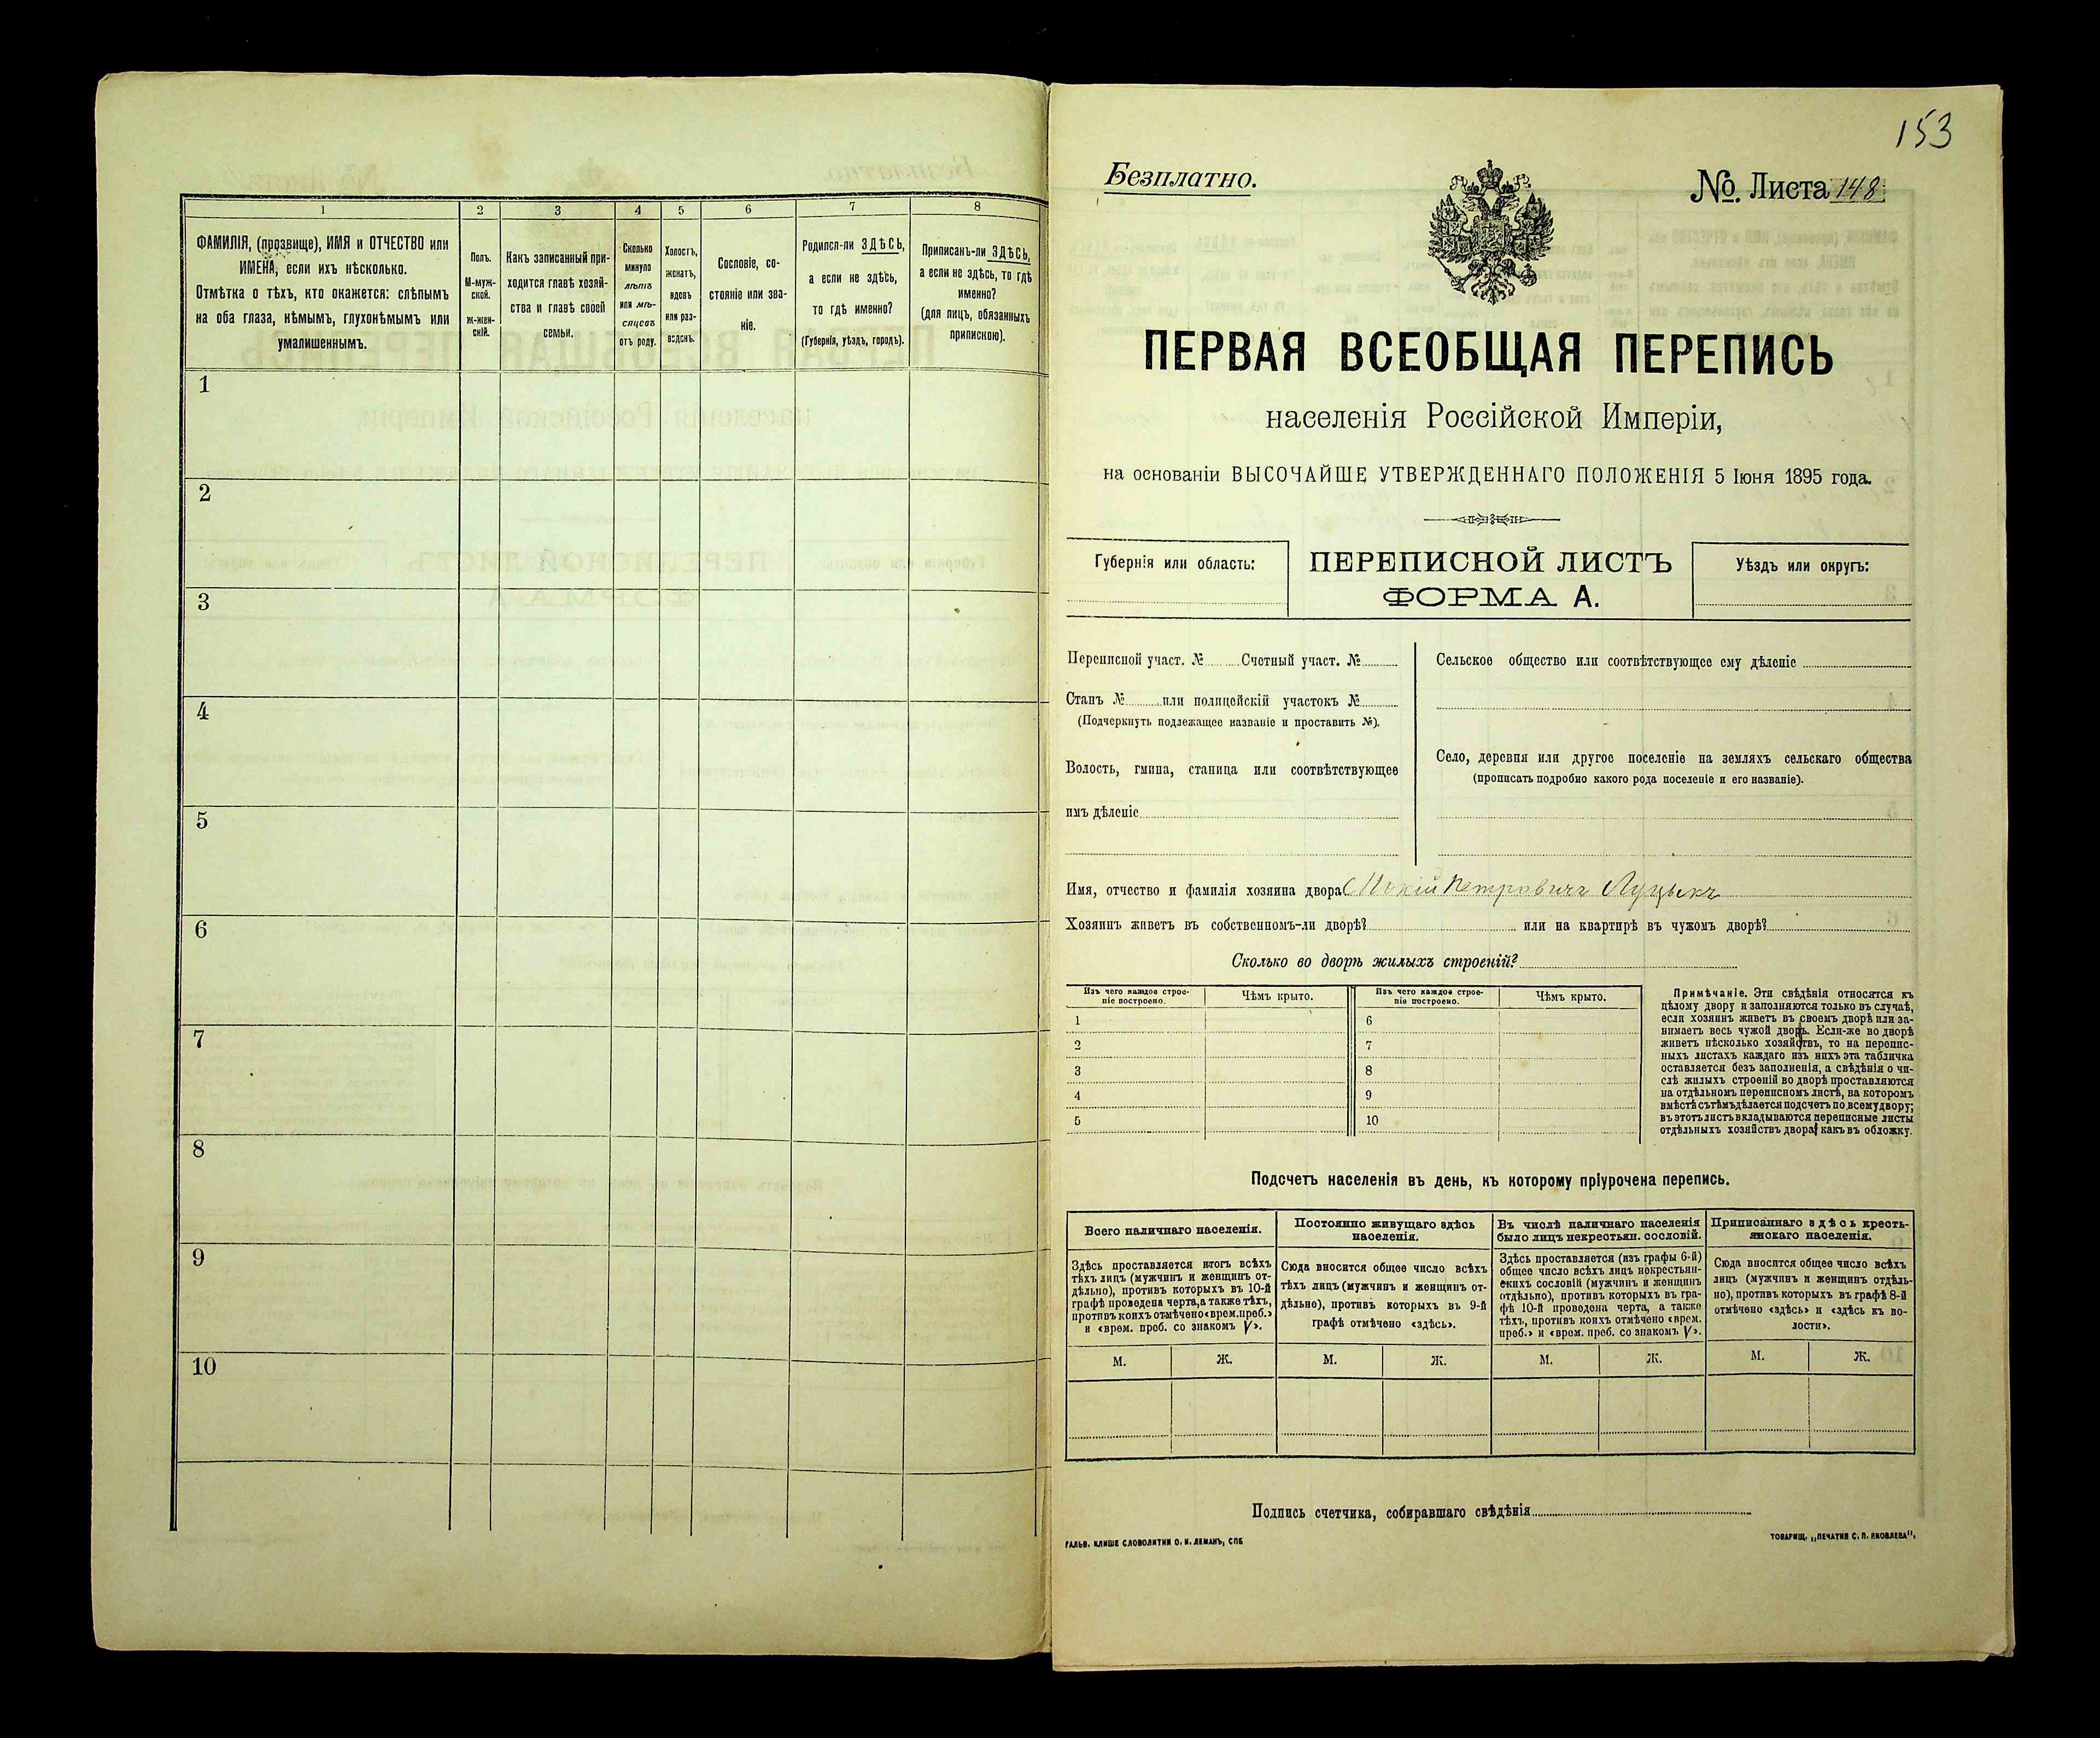 1
2
3
4
5
6
7
8
ФАМИЛІЯ, (прозвище), ИМЯ и ОТЧЕСТВО или
ИМЕНА, если ихъ нѣсколько.
Отмѣтка о тѣхъ, кто окажется: слѣпымъ
на оба глаза, нѣмымъ, глухонѣмымъ или
умалишеннымъ.
Полъ.
М-муж-
ской.
Ж-жен-
скій.
Какъ записанный при-
ходится главѣ хозяй-
ства и главѣ своей
семьи.
Сколько
минуло
лѣтъ
или мѣ-
сяцевъ
отъ роду.
Холостъ,
женатъ,
вдовъ
или раз-
веденъ.
Сословіе, со-
стояніе или зва-
ніе.
Родился-ли ЗДѢСЬ,
а если не здѣсь,
то гдѣ именно?
(Губернія, уѣздъ, городъ).
Приписанъ-ли ЗДѢСЬ,
а если не здѣсь, то гдѣ
именно?
(для лицъ, обязанныхъ
припискою).
1
2
3
4
5
6
7
8
9
10
153
Безплатно.
№. Листа 148
ПЕРВАЯ ВСЕОБЩАЯ ПЕРЕПИСЬ
населенія Россійской Имперіи,
на основаніи ВЫСОЧАЙШЕ УТВЕРЖДЕННАГО ПОЛОЖЕНІЯ 5 Іюня 1895 года.
Губернія или область:
ПЕРЕПИСНОЙ ЛИСТЪ
ФОРМА А.
Уѣздъ или округъ:
Переписной участ. № Счетный участ. №
Станъ № или полицейскій участокъ №
(Подчеркнуть подлежащее названіе и проставить №).
Волость, гмина, станица или соотвѣтствующее
имъ дѣленіе
Сельское общество или соотвѣтствующее ему дѣленіе
Село, деревня или другое поселеніе на земляхъ сельскаго общества
(прописать подробно какого рода поселеніе и его названіе).
Имя, отчество и фамилія хозяина двора Мокій Петровичъ Луцыкъ
Хозяинъ живетъ въ собственномъ-ли дворѣ? или на квартирѣ въ чужомъ дворѣ?
Сколько во дворѣ жилыхъ строеній?
Изъ чего каждое строе-
ніе построено.
Чѣмъ крыто.
Изъ чего каждое строе-
ніе построено.
Чѣмъ крыто.
1
2
3
4
5
6
7
8
9
10
Примѣчаніе. Эти свѣдѣнія относятся къ
цѣлому двору и заполняются только въ случаѣ,
если хозяинъ живетъ въ своемъ дворѣ или за-
нимаетъ весь чужой дворъ. Если-же во дворѣ
живетъ нѣсколько хозяйствъ, то на перепис-
ныхъ листахъ каждаго изъ нихъ эта табличка
оставляется безъ заполненія, а свѣдѣнія о чи-
слѣ жилыхъ строеній во дворѣ проставляются
на отдѣльномъ переписномъ листѣ, на которомъ
вмѣстѣ съ тѣмъ дѣлается подсчетъ по всему двору;
въ этотъ листъ вкладываются переписные листы
отдѣльныхъ хозяйствъ двора, какъ въ обложку.
Подсчетъ населенія въ день, къ которому пріурочена перепись.
Всего наличнаго населенія.
Постоянно живущаго здѣсь
населенія.
Въ числѣ наличнаго населенія
было лицъ некрестьян. сословій.
Приписаннаго здѣсь кресть-
янскаго населенія.
Здѣсь проставляется итогъ всѣхъ
тѣхъ лицъ (мужчинъ и женщинъ от-
дѣльно), противъ которыхъ въ 10-й
графѣ проведена черта, а также тѣхъ,
противъ коихъ отмѣчено «врем. преб.»
и «врем. преб. со знакомъ V».
Сюда вносится общее число всѣхъ
тѣхъ лицъ (мужчинъ и женщинъ от-
дѣльно), противъ которыхъ въ 9-й
графѣ отмѣчено «здѣсь».
Здѣсь проставляется (изъ графы 6-й)
общее число всѣхъ лицъ некрестьян-
скихъ сословій (мужчинъ и женщинъ
отдѣльно), противъ которыхъ въ гра-
фѣ 10-й проведена черта, а также
тѣхъ, противъ коихъ отмѣчено «врем.
преб.» и «врем. преб. со знакомъ V».
Сюда вносится общее число всѣхъ
лицъ (мужчинъ и женщинъ отдѣль-
но), противъ которыхъ въ графѣ 8-й
отмѣчено «здѣсь» и «здѣсь къ во-
лости».
М. Ж. М. Ж. М. Ж. М. Ж.
Подпись счетчика, собиравшаго свѣдѣнія
ГАЛЬВ. КЛИШЕ СЛОВОЛИТНИ О. И. ЛЕМАНЪ, СПБ
ТОВАРИЩ. „ПЕЧАТНИ С. П. ЯКОВЛЕВА“.